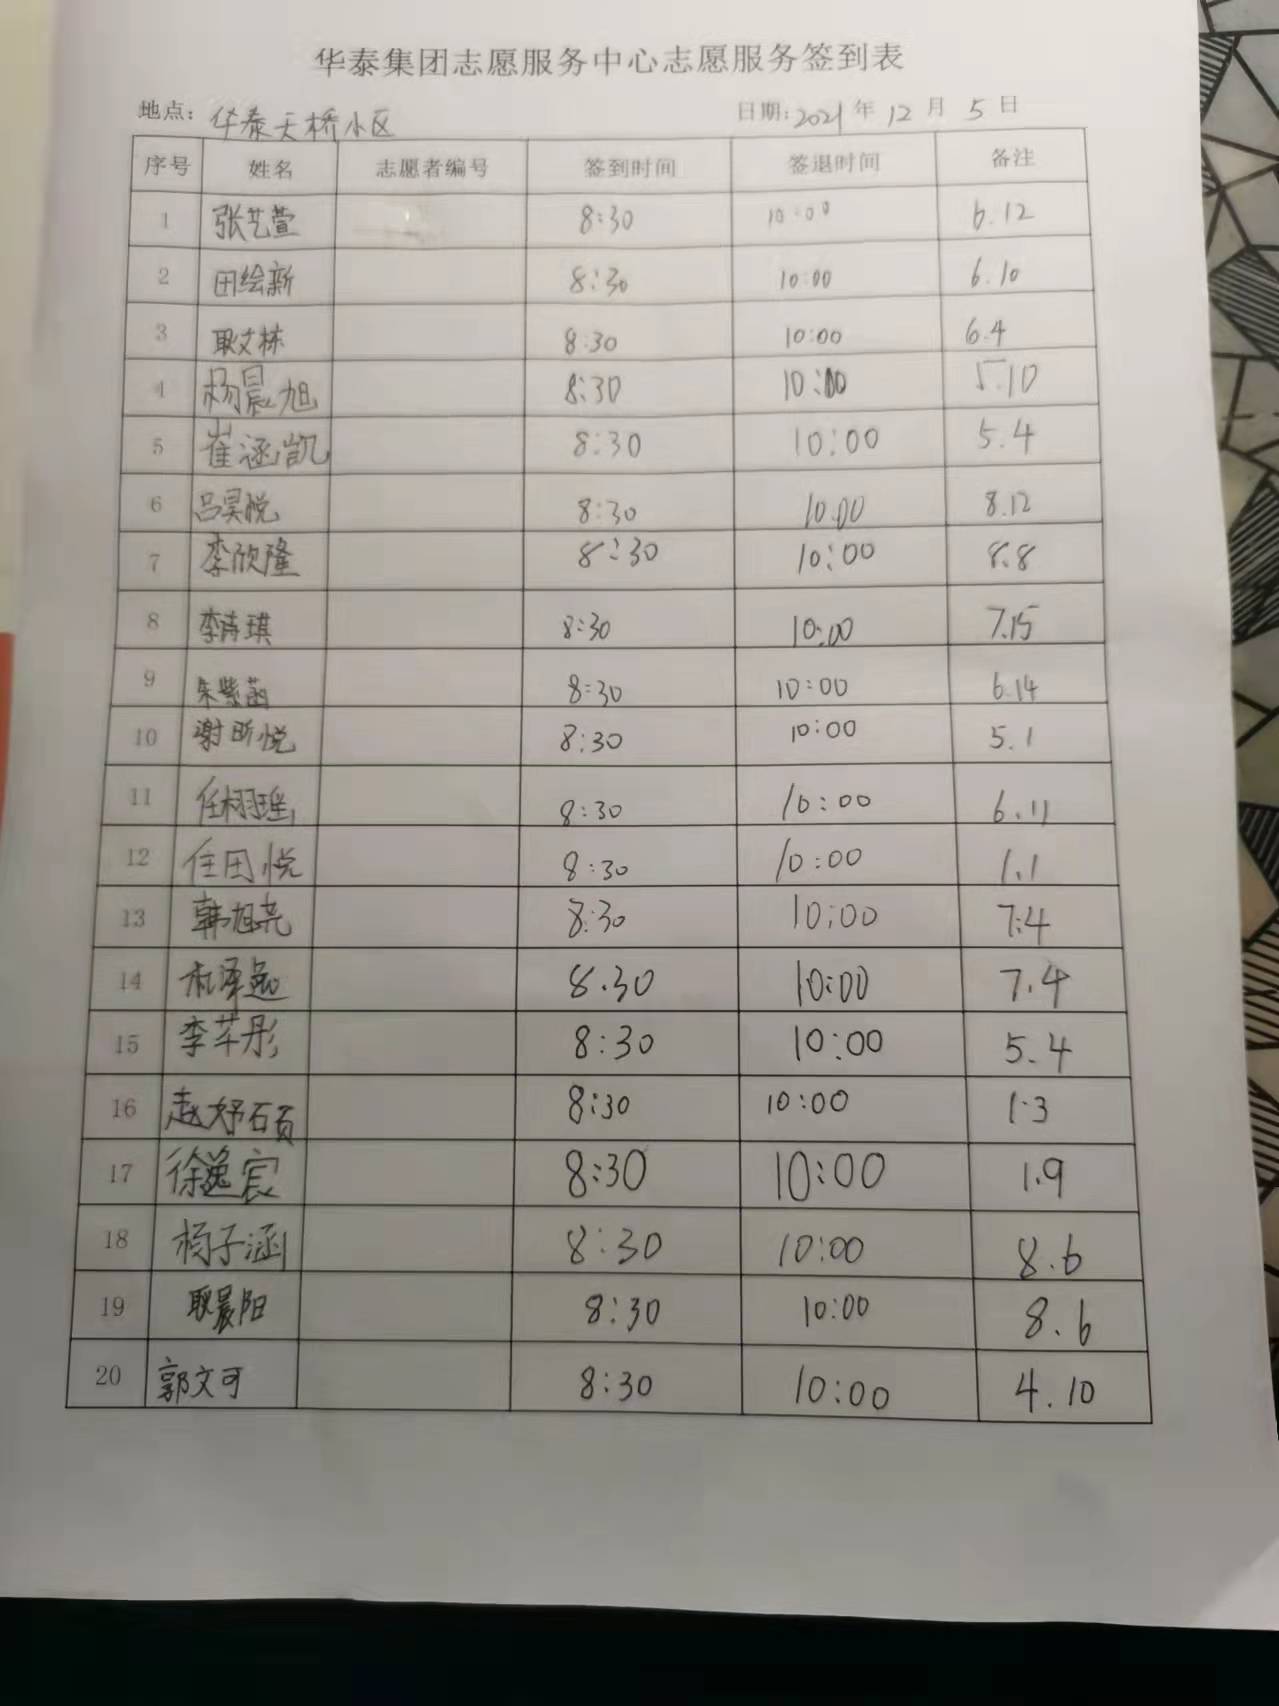 华泰集团志愿服务中心志愿服务签到表
地点：华泰天桥小区 日期：2021年12月5日
序号 姓名 志愿者编号 签到时间 签退时间 备注
1 张艺萱 8:30 10:00 6.12
2 田绘新 8:30 10:00 6.10
3 耿文栋 8:30 10:00 6.4
4 杨晨旭 8:30 10:00 5.10
5 崔涵凯 8:30 10:00 5.4
6 吕昊悦 8:30 10.00 8.12
7 李欣隆 8:30 10:00 8.8
8 李 琪 8:30 10:00 7.15
9 朱紫菡 8:30 10:00 6.14
10 谢昕悦 8:30 10:00 5.1
11 任栩瑶 8:30 10:00 6.11
12 任田悦 8:30 10:00 1.1
13 韩旭尧 8:30 10:00 7.4
14 泽逸 8.30 10:00 7.4
15 李芊彤 8:30 10:00 5.4
16 赵妤硕 8:30 10:00 1.3
17 徐逸宸 8:30 10:00 1.9
18 杨子涵 8:30 10:00 8.6
19 耿晨阳 8:30 10:00 8.6
20 郭文可 8:30 10:00 4.10